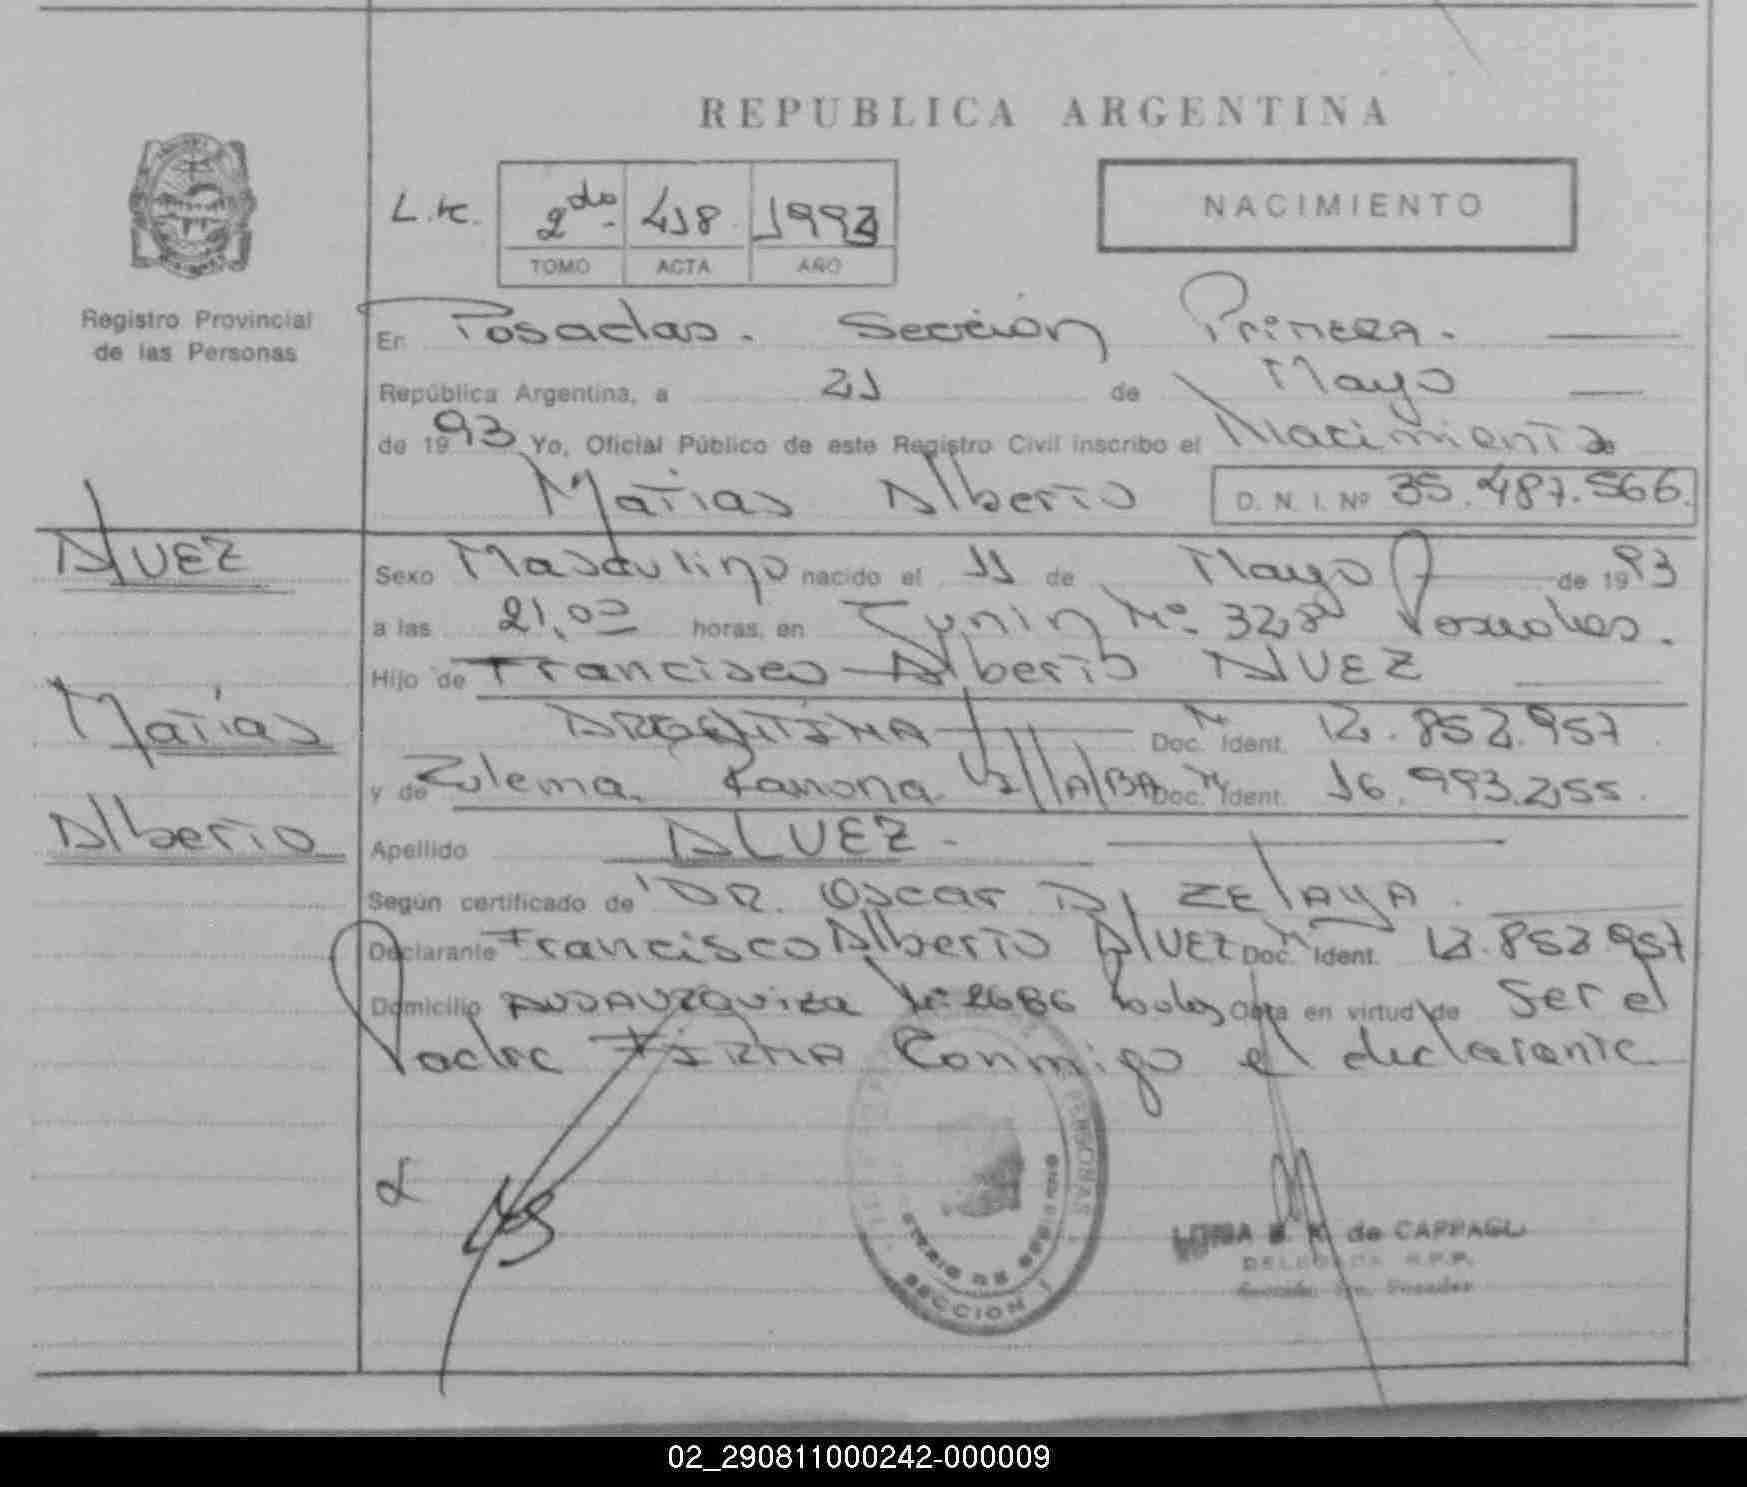 REPUBLICA ARGENTINA
2do 418 1993
TOMO ACTA AÑO
NACIMIENTO
Registro Provincial
de las Personas
En Posadas. Sección Primera.
República Argentina, a 21 de Mayo
de 1993 Yo, Oficial Público de este Registro Civil inscribo el Nacimiento de
Matias Alberto D. N. I. Nº 35.487.566.
ALVEZ
Matias
Alberto
Sexo Masculino nacido el 11 de Mayo de 1993
a las 21,00 horas, en Junin Nº 328 Posadas.
Hijo de Francisco Alberto ALVEZ
ARGENTINA Doc. Ident. 12.852.957
y de Zulema Ramona VillALBA Doc. Ident. 16.993.255.
Apellido ALVEZ.
Según certificado de DR. Oscar A. ZElAyA.
Declarante Francisco Alberto AlVEZ Doc. Ident. 12.852.957
Domicilio Nº 2686 Obra en virtud de Ser el
Padre FIRMA Conmigo el declarante
PERSONAS
SECCION 1
de CAPPAGLI
DELEGADA R.P.P.
02_290811000242-000009